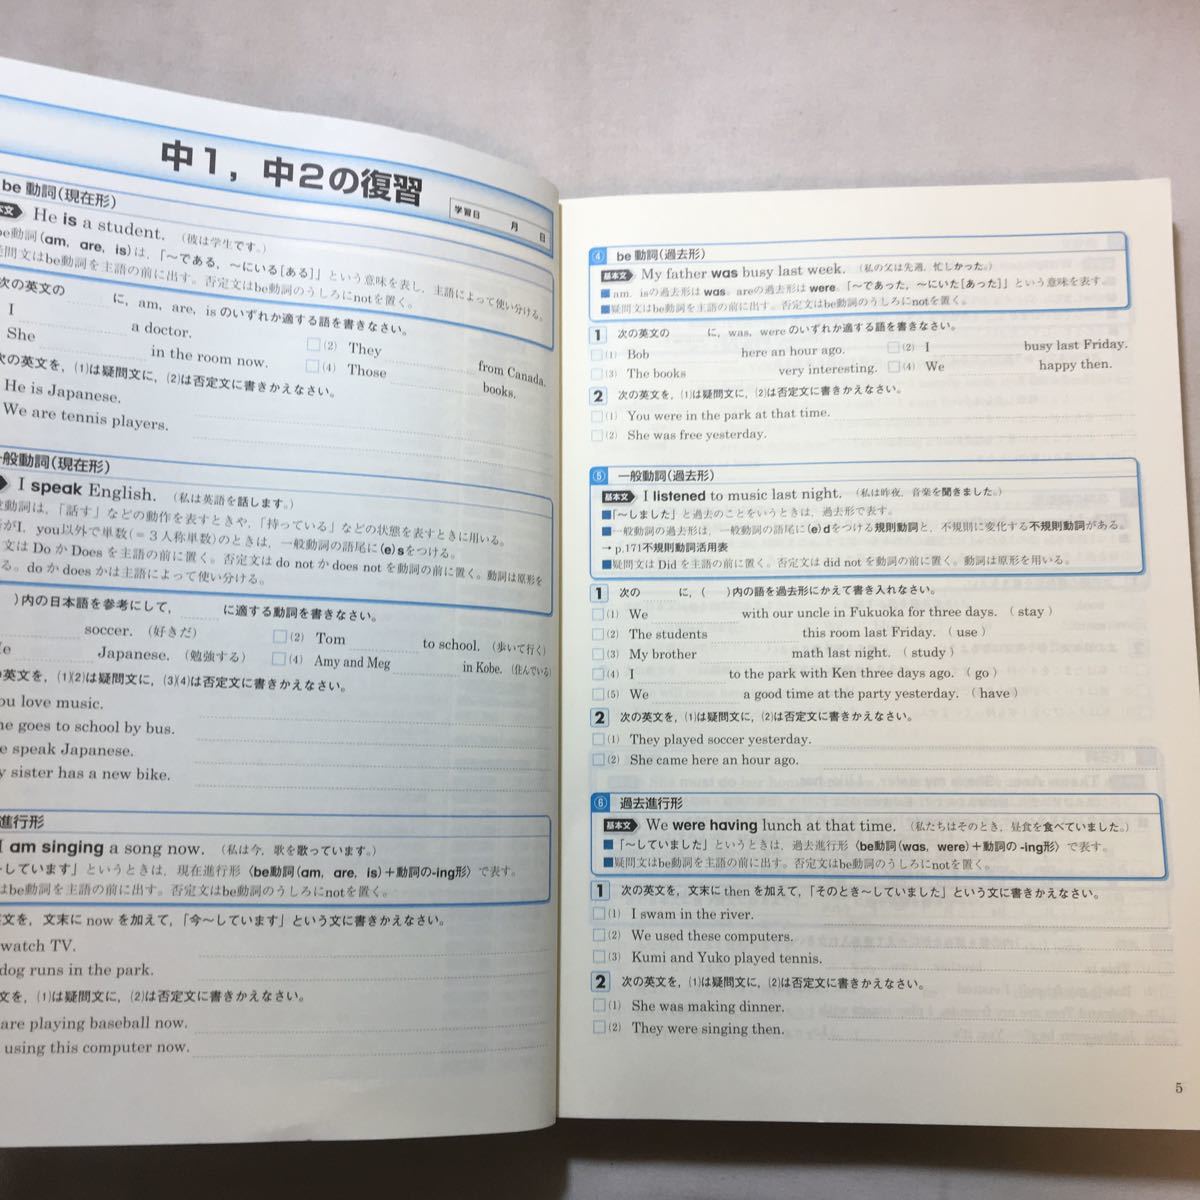 中1，中2の復習
学習日　月　日
be 動詞(現在形)
He is a student. （彼は学生です。）
be動詞(am, are, is)は，「～である，～にいる[ある]」という意味を表し，主語によって使い分ける。
疑問文はbe動詞を主語の前に出す。否定文はbe動詞のうしろにnotを置く。
次の英文の　　　に，am, are, isのいずれか適する語を書きなさい。
I　　　a doctor.　(2) They　　　from Canada.
She　　　in the room now.　(4) Those　　　books.
次の英文を，(1)は疑問文に，(2)は否定文に書きかえなさい。
He is Japanese.
We are tennis players.
般動詞(現在形)
I speak English. （私は英語を話します。）
般動詞は，「話す」などの動作を表すときや，「持っている」などの状態を表すときに用いる。
がI, you以外で単数(＝3人称単数)のときは，一般動詞の語尾に(e)sをつける。
文は DoかDoesを主語の前に置く。否定文は do notかdoes notを動詞の前に置く。動詞は原形を
る。doかdoesかは主語によって使い分ける。
)内の日本語を参考にして，　　　に適する動詞を書きなさい。
soccer.（好きだ）　(2) Tom　　　to school.（歩いて行く）
Japanese.（勉強する）　(4) Amy and Meg　　　in Kobe.（住んでいる）
英文を，(1)(2)は疑問文に，(3)(4)は否定文に書きかえなさい。
ou love music.
he goes to school by bus.
e speak Japanese.
y sister has a new bike.
進行形
I am singing a song now. （私は今，歌を歌っています。）
～しています」というときは，現在進行形〈be動詞(am, are, is)＋動詞の-ing形〉で表す。
はbe動詞を主語の前に出す。否定文はbe動詞のうしろにnotを置く。
英文を，文末に now を加えて，「今～しています」という文に書きかえなさい。
watch TV.
dog runs in the park.
文を，(1)は疑問文に，(2)は否定文に書きかえなさい。
are playing baseball now.
using this computer now.
④ be動詞(過去形)
基本文 My father was busy last week. （私の父は先週，忙しかった。）
■am, isの過去形は was，areの過去形は were。「～であった，～にいた[あった]」という意味を表す。
■疑問文はbe動詞を主語の前に出す。否定文はbe動詞のうしろにnotを置く。
1 次の英文の　　　に，was, were のいずれか適する語を書きなさい。
(1) Bob　　　here an hour ago.　(2) I　　　busy last Friday.
(3) The books　　　very interesting.　(4) We　　　happy then.
2 次の英文を，(1)は疑問文に，(2)は否定文に書きかえなさい。
(1) You were in the park at that time.
(2) She was free yesterday.
⑤ 一般動詞(過去形)
基本文 I listened to music last night. （私は昨夜，音楽を聞きました。）
■「～しました」と過去のことをいうときは，過去形で表す。
■一般動詞の過去形は，一般動詞の語尾に(e)dをつける規則動詞と，不規則に変化する不規則動詞がある。
→ p.171不規則動詞活用表
■疑問文は Did を主語の前に置く。否定文は did not を動詞の前に置く。動詞は原形を用いる。
1 次の　　　に，(　)内の語を過去形にかえて書き入れなさい。
(1) We　　　with our uncle in Fukuoka for three days. ( stay )
(2) The students　　　this room last Friday. ( use )
(3) My brother　　　math last night. ( study )
(4) I　　　to the park with Ken three days ago. ( go )
(5) We　　　a good time at the party yesterday. ( have )
2 次の英文を，(1)は疑問文に，(2)は否定文に書きかえなさい。
(1) They played soccer yesterday.
(2) She came here an hour ago.
⑥ 過去進行形
基本文 We were having lunch at that time. （私たちはそのとき，昼食を食べていました。）
■「～していました」というときは，過去進行形〈be動詞(was, were)＋動詞の -ing形〉で表す。
■疑問文はbe動詞を主語の前に出す。否定文はbe動詞のうしろにnotを置く。
1 次の英文を，文末に then を加えて，「そのとき～していました」という文に書きかえなさい。
(1) I swam in the river.
(2) We used these computers.
(3) Kumi and Yuko played tennis.
2 次の英文を，(1)は疑問文に，(2)は否定文に書きかえなさい。
(1) She was making dinner.
(2) They were singing then.
5